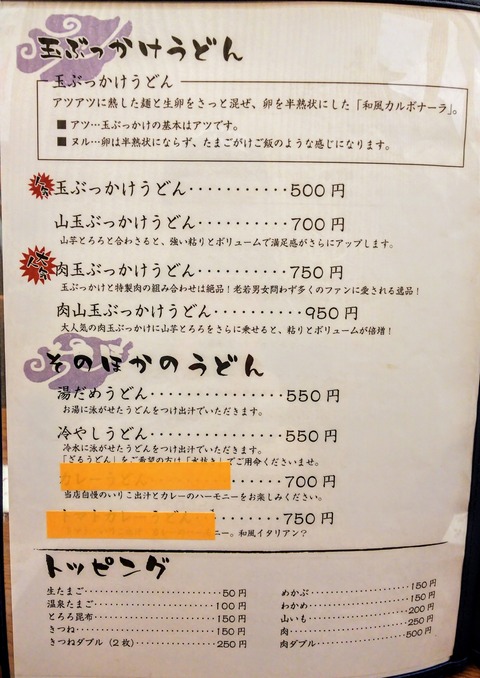 玉ぶっかけうどん
玉ぶっかけうどん
アツアツに熱した麺と生卵をさっと混ぜ、卵を半熟状にした「和風カルボナーラ」。
■ アツ…玉ぶっかけの基本はアツです。
■ ヌル…卵は半熟状にならず、たまごがけご飯のような感じになります。
人気 玉ぶっかけうどん・・・・・・・・・・・500円
山玉ぶっかけうどん・・・・・・・・・・700円
山芋とろろと合わさると、強い粘りとボリュームで満足感がさらにアップします。
大人気 肉玉ぶっかけうどん・・・・・・・・・・750円
玉ぶっかけと特製肉の組み合わせは絶品！老若男女問わず多くのファンに愛される逸品！
肉山玉ぶっかけうどん・・・・・・・・・950円
大人気の肉玉ぶっかけに山芋とろろをさらに乗せると、粘りとボリュームが倍増！
そのほかのうどん
湯だめうどん・・・・・・・・・・・・・・・550円
お湯に泳がせたうどんをつけ出汁でいただきます。
冷やしうどん・・・・・・・・・・・・・・・550円
冷水に泳がせたうどんをつけ出汁でいただきます。
「ざるうどん」をご希望の方は「水抜き」でご用命くださいませ。
カレーうどん・・・・・700円
当店自慢のいりこ出汁とカレーのハーモニーをお楽しみください。
カレーうどん・・・・・・750円
ー。和風イタリアン？
トッピング
生たまご・・・・・・・・・・・50円
温泉たまご・・・・・・・・・・100円
とろろ昆布・・・・・・・・・・150円
きつね・・・・・・・・・・・・150円
きつねダブル（2枚）・・・・・・250円
めかぶ・・・・・・・・・・・・150円
わかめ・・・・・・・・・・・・150円
山いも・・・・・・・・・・・・200円
肉・・・・・・・・・・・・・・250円
肉ダブル・・・・・・・・・・・500円